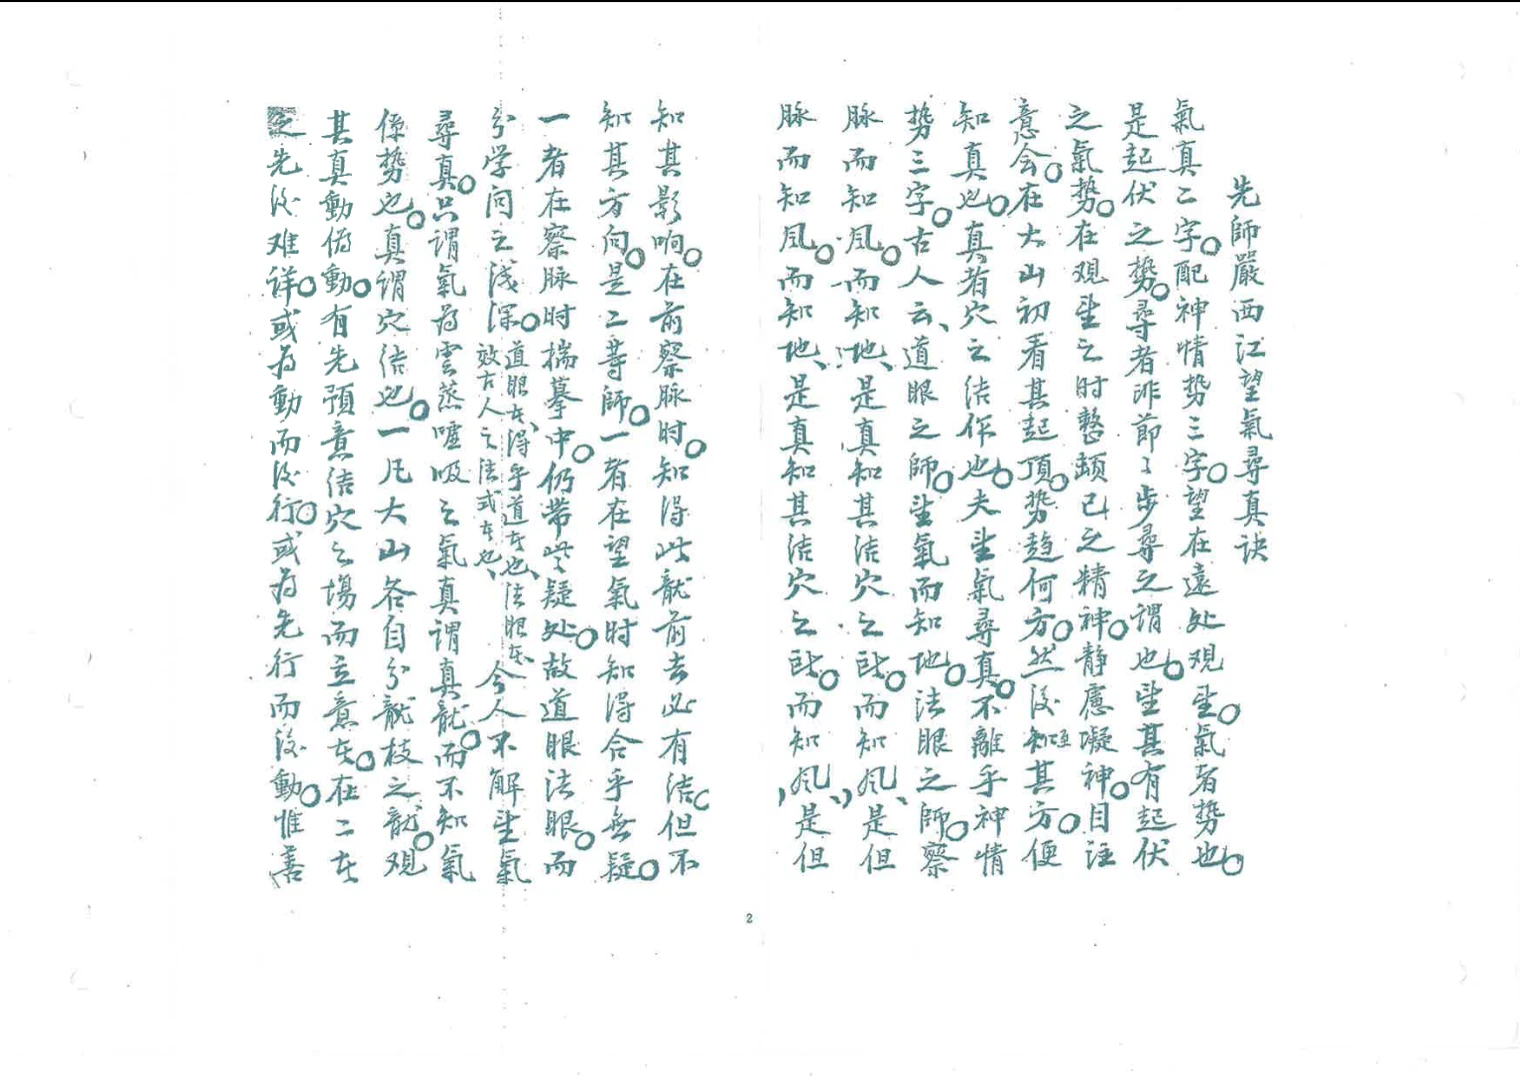 先師嚴西江望氣尋真訣
氣真二字。配神情势三字。望在遠处观望。氣者势也。
是起伏之势。尋者跡節々步尋之谓也。望其有起伏
之氣势。在观望之时整頓己之精神。静慮凝神。目注
意会。在大山初看其起頂。势趋何方。然後知其方。便
知真也。真者穴之结作也。夫望氣尋真。不離乎神情
势三字。古人云、道眼之師。望氣而知地。法眼之師。察
脉而知风。而知地、是真知其结穴之所。而知风、是但
脉而知风。而知地、是真知其结穴之所。而知风、是但
知其影响。在前察脉时。知得此龍前去必有结。但不
知其方向。是二等師。一者在望氣时知得合乎無疑。
一者在察脉时揣摹中。仍带些疑处。故道眼法眼。而
分学问之浅深。道眼者、得乎道者也、法眼者、效古人之法式者也、今人不解望氣
尋真。只谓氣为雲蒸嘘吸之氣真谓真龍。而不知氣
係势也。真谓穴结也。一凡大山各自分龍枝之龍。观
其真動偽動。有先預意结穴之場而立意者。在二者
之先後难详。或为動而後行。或为先行而後動。惟善
2